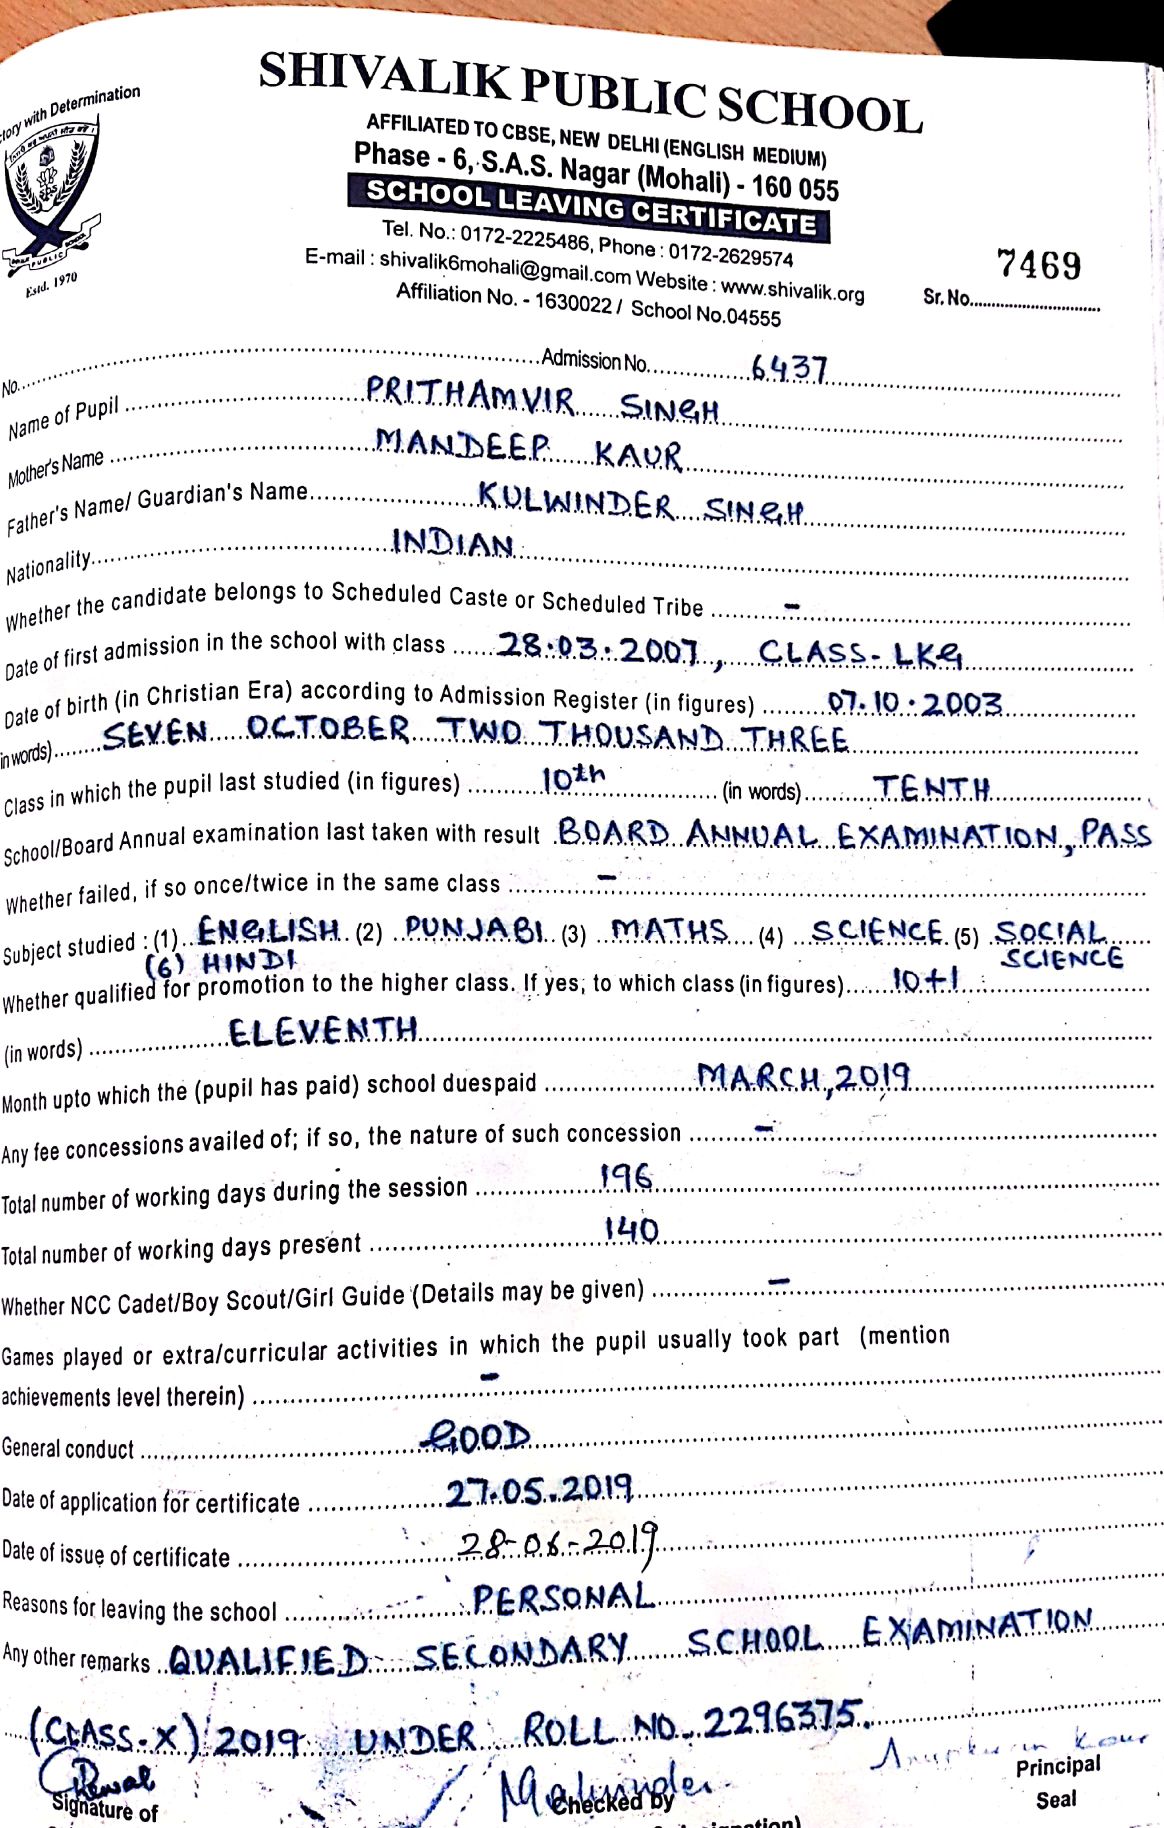 SHIVALIK PUBLIC SCHOOL
tory with Determination
AFFILIATED TO CBSE, NEW DELHI (ENGLISH MEDIUM)
Phase - 6, S.A.S. Nagar (Mohali) - 160 055
SCHOOL LEAVING CERTIFICATE
Tel. No.: 0172-2225486, Phone : 0172-2629574
E-mail : shivalik6mohali@gmail.com Website : www.shivalik.org
Affiliation No. - 1630022 / School No.04555
PUBLIC SCHOOL
Estd. 1970
7469
Sr. No.
No. Admission No. 6437
Name of Pupil PRITHAMVIR SINGH
Mother's Name MANDEEP KAUR
Father's Name/ Guardian's Name KULWINDER SINGH
Nationality INDIAN
Whether the candidate belongs to Scheduled Caste or Scheduled Tribe -
Date of first admission in the school with class 28.03.2007, CLASS-LKG
Date of birth (in Christian Era) according to Admission Register (in figures) 07.10.2003
in words) SEVEN OCTOBER TWO THOUSAND THREE
Class in which the pupil last studied (in figures) 10th (in words) TENTH
School/Board Annual examination last taken with result BOARD ANNUAL EXAMINATION, PASS
Whether failed, if so once/twice in the same class -
Subject studied : (1) ENGLISH (2) PUNJABI (3) MATHS (4) SCIENCE (5) SOCIAL SCIENCE
(6) HINDI
Whether qualified for promotion to the higher class. If yes, to which class (in figures) 10+1
(in words) ELEVENTH
Month upto which the (pupil has paid) school duespaid MARCH, 2019
Any fee concessions availed of; if so, the nature of such concession -
Total number of working days during the session 196
Total number of working days present 140
Whether NCC Cadet/Boy Scout/Girl Guide (Details may be given) -
Games played or extra/curricular activities in which the pupil usually took part (mention
achievements level therein) -
General conduct GOOD
Date of application for certificate 27.05.2019
Date of issue of certificate 28-06-2019
Reasons for leaving the school PERSONAL
Any other remarks QUALIFIED SECONDARY SCHOOL EXAMINATION
(CLASS-X) 2019 UNDER ROLL NO. 2296375.
Signature of Checked by Principal
Seal